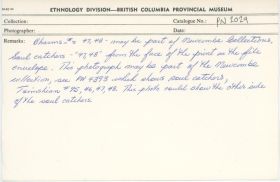 ETHNOLOGY DIVISION—BRITISH COLUMBIA PROVINCIAL MUSEUM
Collection:
Catalogue No.: PN 2029
Photographer:
Date:
Remarks: Charms #s 47,48 - may be part of Newcombe Collections,
Soul catchers - "47,48" from the face of the print in the file
envelope. This photograph may be part of the Newcombe
collection, see PN 4393 which shows soul catchers,
Tsimshian #45, 46, 47, 48. This photo could show the other side
of the soul catchers